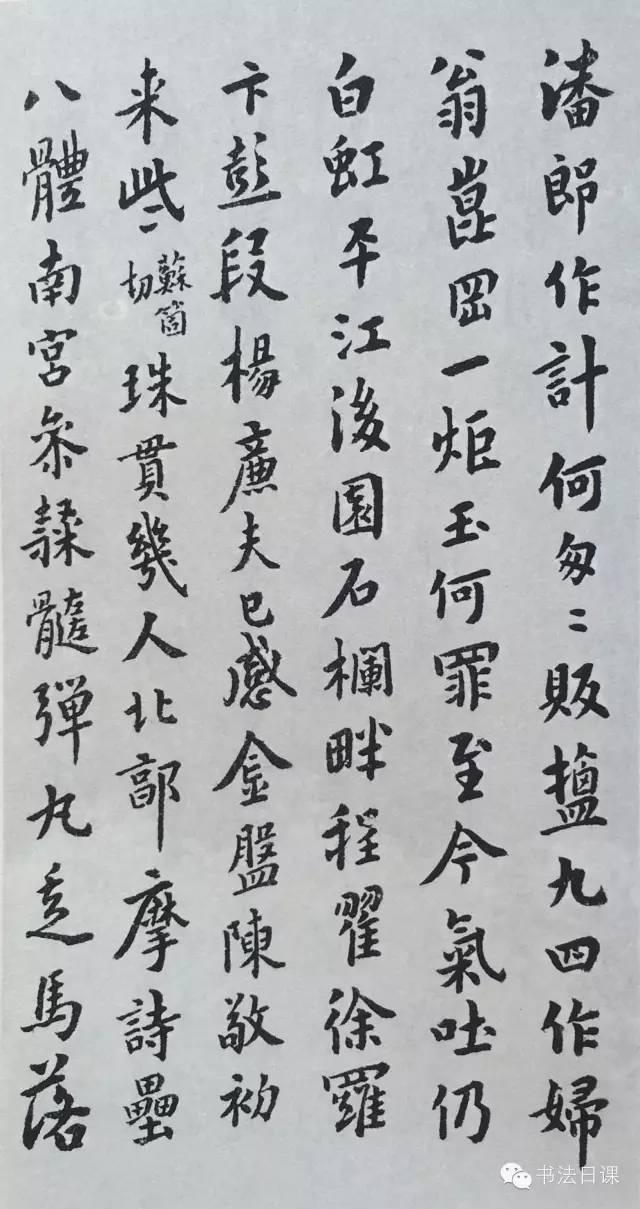 潘郎作計何匆〻販鹽九四作婦
翁崑岡一炬玉何罪至今氣吐仍
白虹平江後園石欄畔程瞿徐羅
卞彭段楊廉夫已感金盤陳敬初
来些〻蘇箇切珠貫幾人北郭摩詩壘
八體南宮參隸髓彈丸走馬落
书法日课